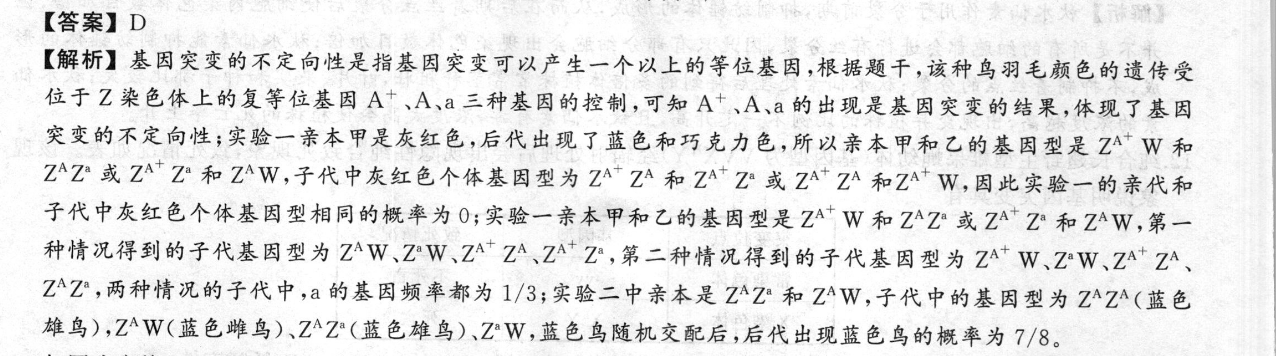 【答案】D
【解析】基因突变的不定向性是指基因突变可以产生一个以上的等位基因,根据题干,该种鸟羽毛颜色的遗传受
位于 Z 染色体上的复等位基因 A⁺、A、a 三种基因的控制,可知 A⁺、A、a 的出现是基因突变的结果,体现了基因
突变的不定向性;实验一亲本甲是灰红色,后代出现了蓝色和巧克力色,所以亲本甲和乙的基因型是 Z^A⁺ W 和
Z^AZ^a 或 Z^A⁺ Z^a 和 Z^AW,子代中灰红色个体基因型为 Z^A⁺ Z^A 和 Z^A⁺ Z^a 或 Z^A⁺ Z^A 和Z^A⁺ W,因此实验一的亲代和
子代中灰红色个体基因型相同的概率为 0;实验一亲本甲和乙的基因型是 Z^A⁺ W 和 Z^AZ^a 或 Z^A⁺ Z^a 和 Z^AW,第一
种情况得到的子代基因型为 Z^AW、Z^aW、Z^A⁺ Z^A、Z^A⁺ Z^a,第二种情况得到的子代基因型为 Z^A⁺ W、Z^aW、Z^A⁺ Z^A、
Z^AZ^a,两种情况的子代中,a 的基因频率都为 1/3;实验二中亲本是 Z^AZ^a 和 Z^AW,子代中的基因型为 Z^AZ^A(蓝色
雄鸟),Z^AW(蓝色雌鸟)、Z^AZ^a(蓝色雄鸟)、Z^aW,蓝色鸟随机交配后,后代出现蓝色鸟的概率为 7/8。